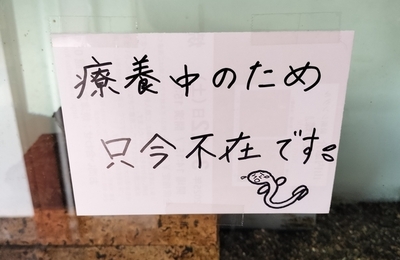 療養中のため
只今不在です